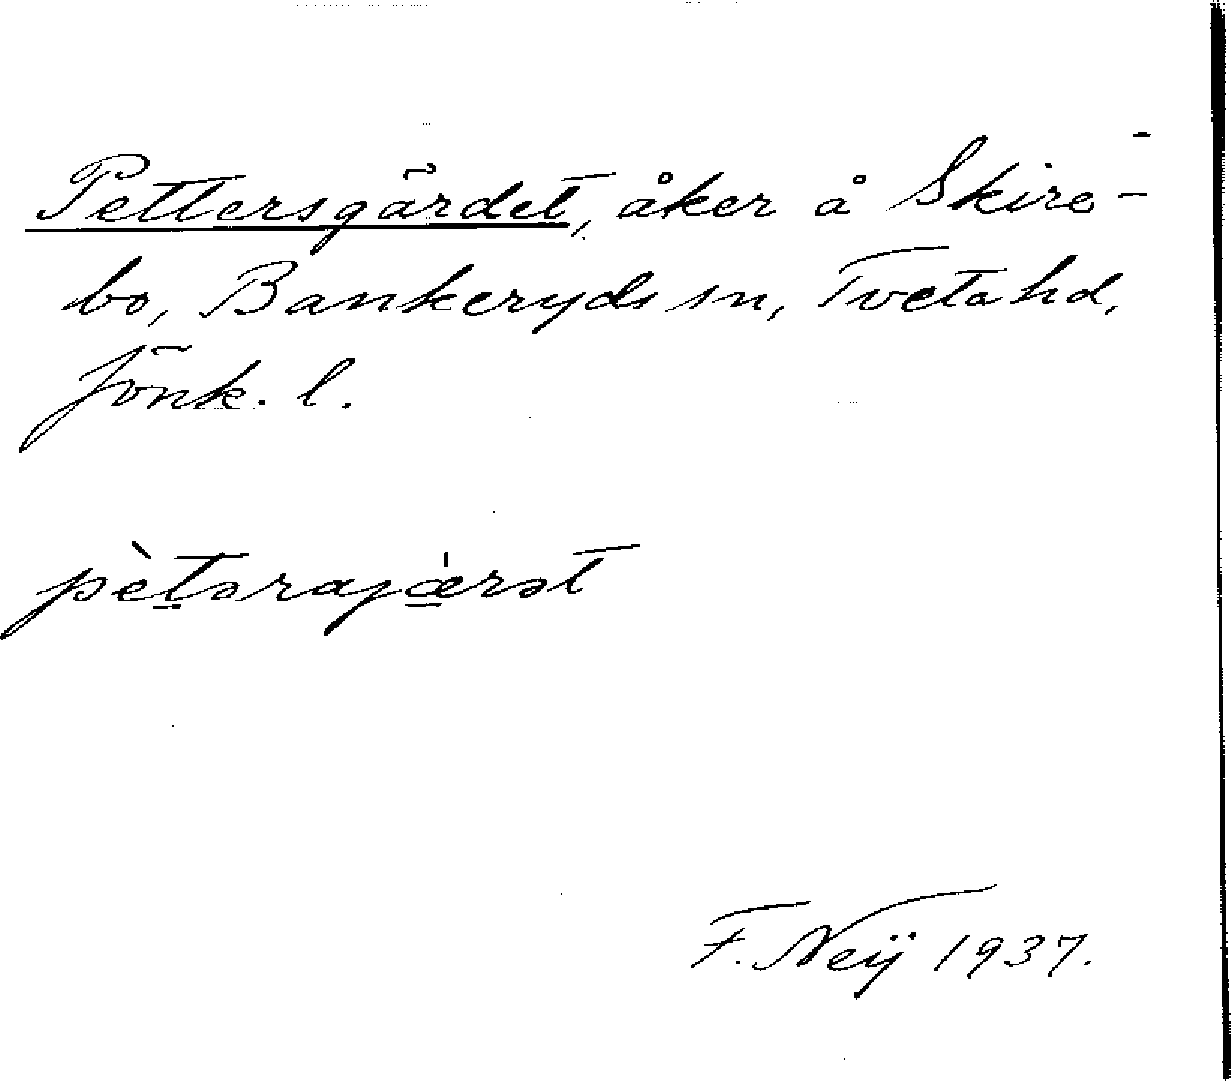 Pettersgärdet, åker å Skire-
bo, Bankeryds sn, Tveta hd,
Jönk. l.
pètərajæ̲rət
F. Neij 1937.